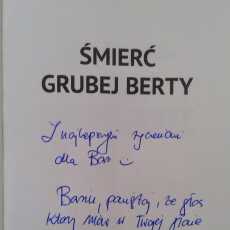 ŚMIERĆ
GRUBEJ BERTY
Z najlepszymi życzeniami
dla Basi
Basiu, pamiętaj, że głos
który masz w Twojej